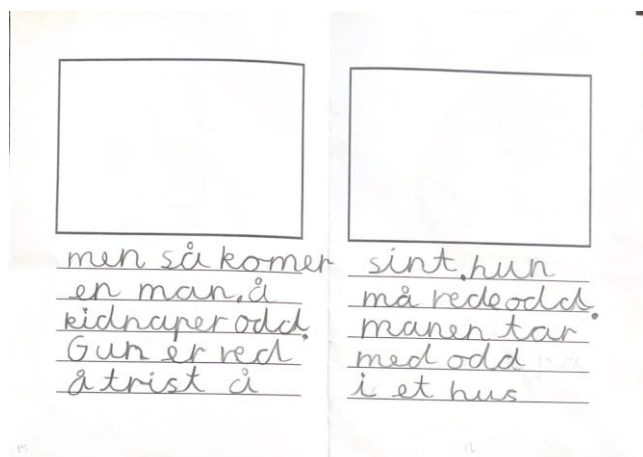 men så komer
en man. å
kidnaper odd.
Gun er red
å trist å
sint. hun
må redeodd.
manen tar
med odd
i et hus
12